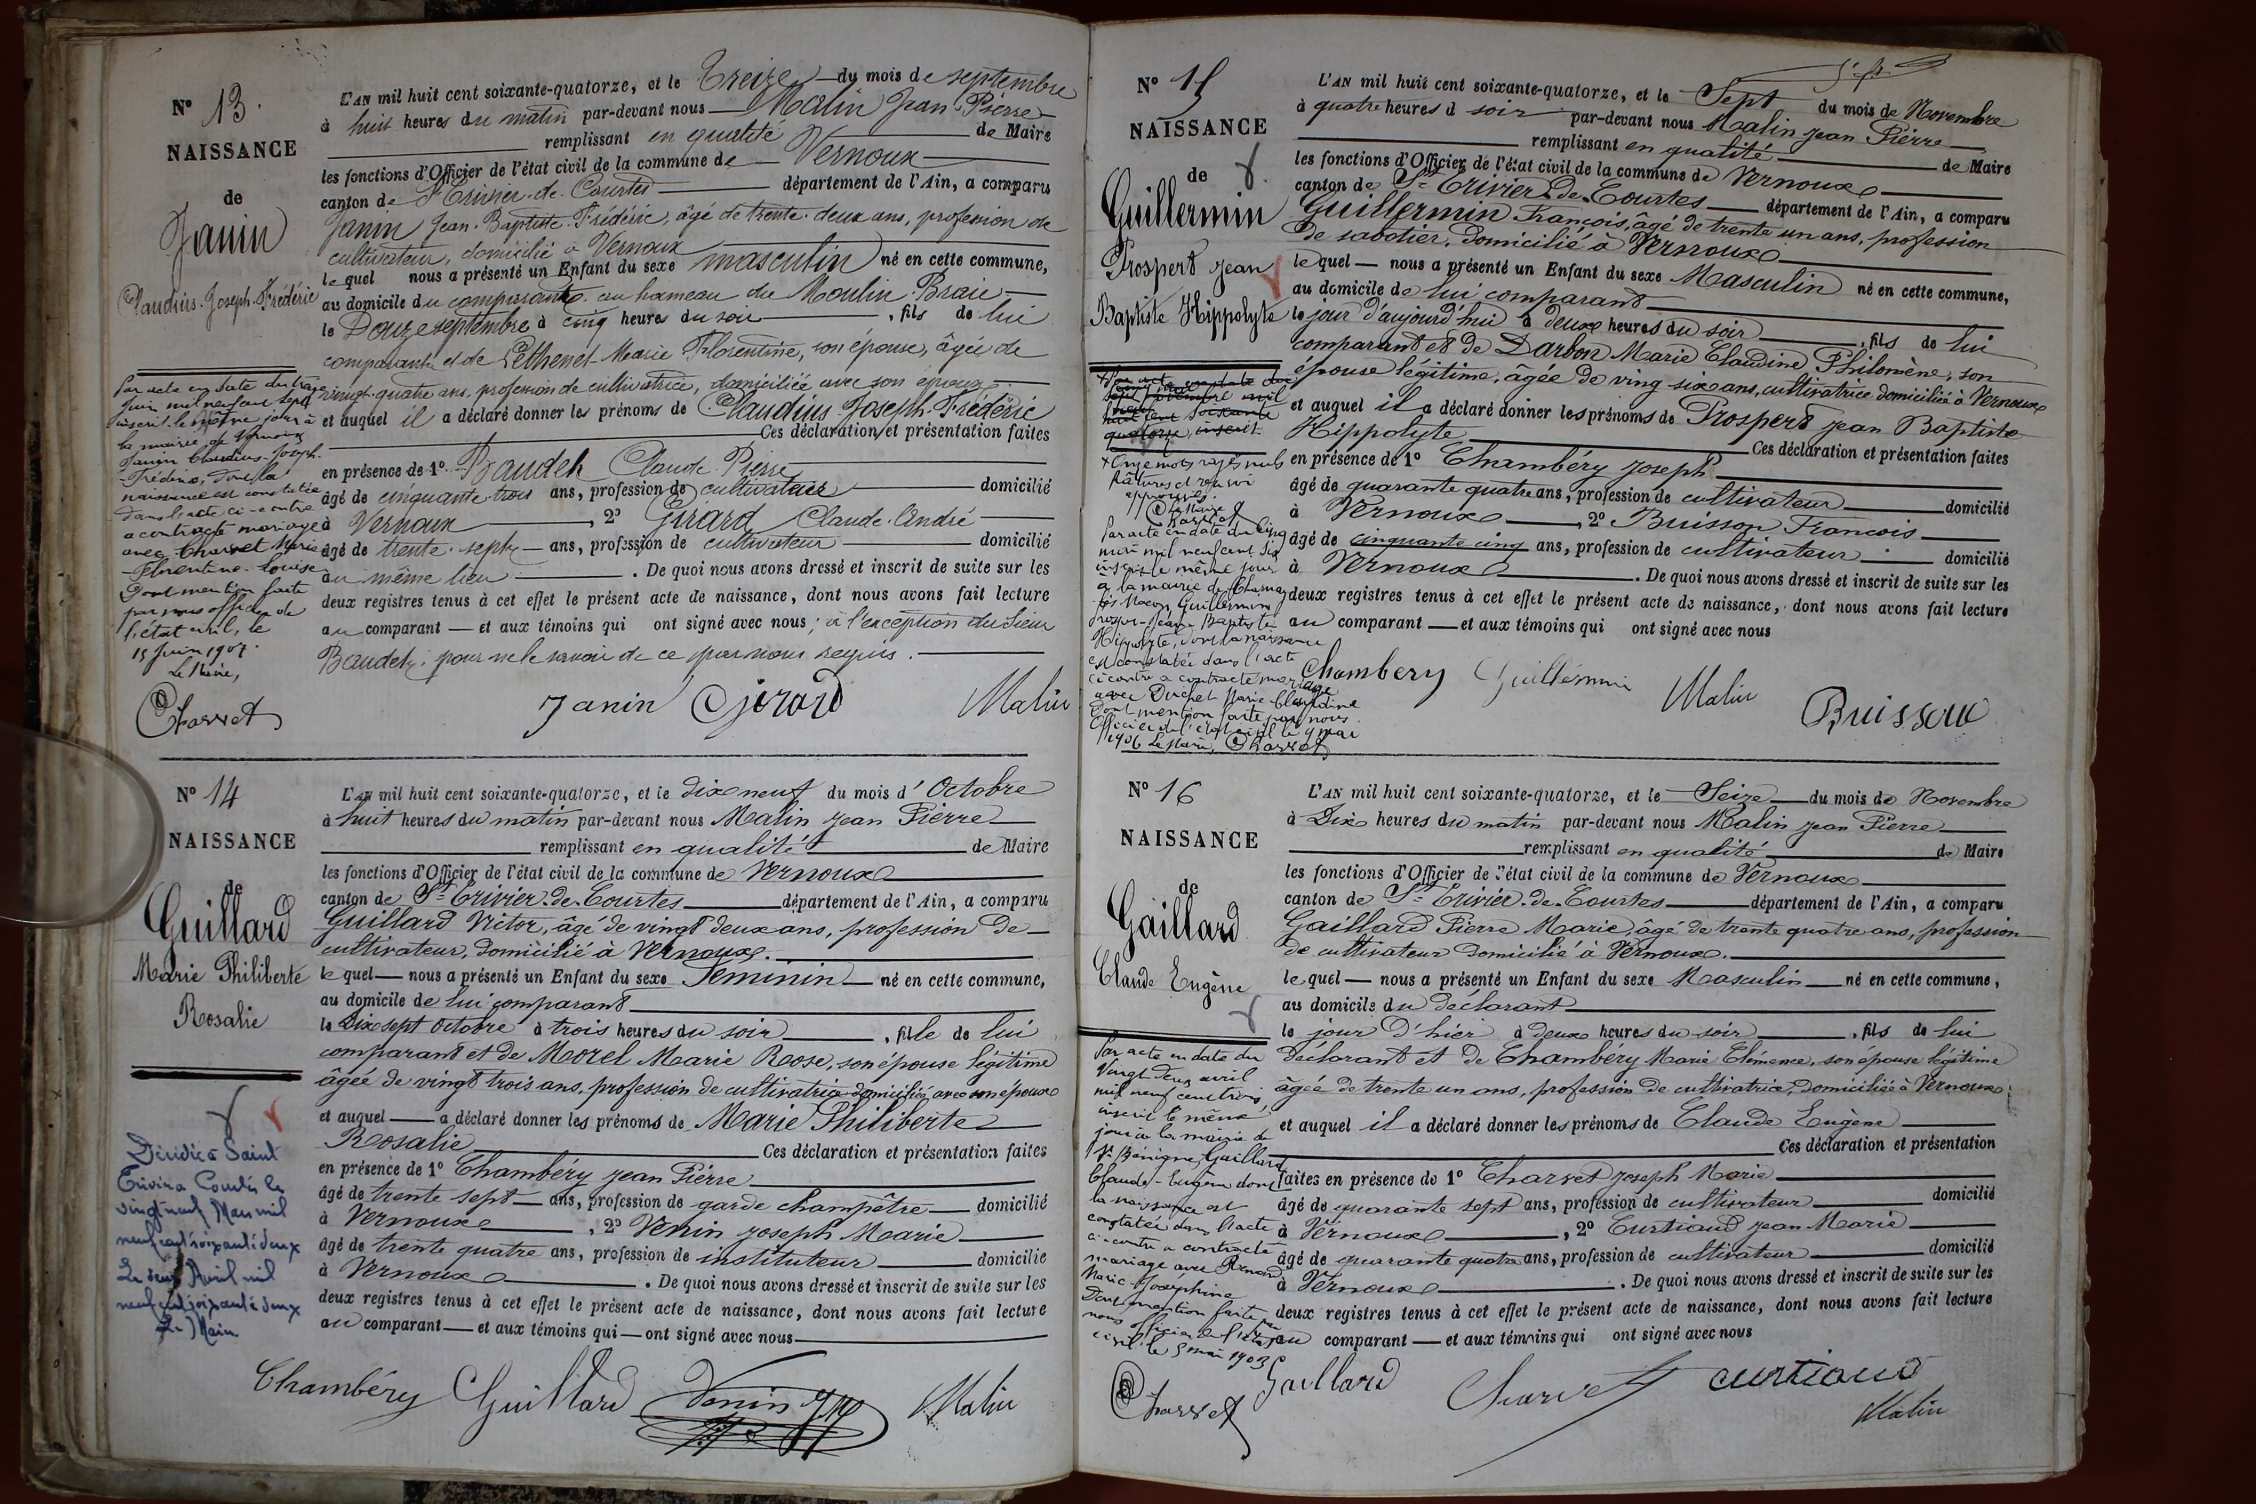 N° 13.
NAISSANCE
de
Janin
Claudius Joseph Frédéric
Par acte en date du treize
Juin mil neuf cent sept
inscrit le même jour à
la mairie de Vernoux
Janin Claudius-Joseph-
Frédéric, dont la
naissance est constatée
dans l'acte ci-contre
a contracté mariage
avec Charvet Marie
-Florentine-Louise
Dont mention faite
par nous officier de
l'état civil, le
15 Juin 1907.
Le Maire,
Charvet
L'AN mil huit cent soixante-quatorze, et le Treize du mois de septembre
à huit heures du matin par-devant nous Malin Jean Pierre
remplissant en qualité de Maire
les fonctions d'Officier de l'état civil de la commune de Vernoux
canton de St Trivier de Courtes département de l'Ain, a comparu
Janin Jean Baptiste Frédéric, âgé de trente deux ans, profession de
cultivateur, domicilié à Vernoux
lequel nous a présenté un Enfant du sexe masculin né en cette commune,
au domicile du comparant au hameau du Moulin Braie
le Douze septembre à cinq heures du soir, fils de lui
comparant et de Pethenet Marie Florentine, son épouse, âgée de
vingt quatre ans, profession de cultivatrice, domiciliée avec son époux
et auquel il a déclaré donner les prénoms de Claudius Joseph Frédéric
Ces déclaration et présentation faites
en présence de 1° Baudet Claude Pierre
âgé de cinquante trois ans, profession de cultivateur domicilié
à Vernoux, 2° Girard Claude André
âgé de trente sept ans, profession de cultivateur domicilié
au même lieu. De quoi nous avons dressé et inscrit de suite sur les
deux registres tenus à cet effet le présent acte de naissance, dont nous avons fait lecture
au comparant et aux témoins qui ont signé avec nous, à l'exception du sieur
Baudet, pour ne le savoir de ce par nous requis.
Janin Girard Malin
N° 14
NAISSANCE
de
Guillard
Marie Philiberte
Rosalie
Décédée à Saint
Trivier Courtes le
vingt neuf Mars mil
neuf cent soixante deux
Le deux Avril mil
neuf cent soixante deux
Le Maire
L'AN mil huit cent soixante-quatorze, et le dix neuf du mois d'Octobre
à huit heures du matin par-devant nous Malin Jean Pierre
remplissant en qualité de Maire
les fonctions d'Officier de l'état civil de la commune de Vernoux
canton de St Trivier de Courtes département de l'Ain, a comparu
Guillard Victor, âgé de vingt deux ans, profession de
cultivateur, domicilié à Vernoux.
lequel nous a présenté un Enfant du sexe Féminin né en cette commune,
au domicile de lui comparant
le Dix sept Octobre à trois heures du soir, fille de lui
comparant et de Morel Marie Rose, son épouse légitime
âgée de vingt trois ans, profession de cultivatrice domiciliée avec son époux
et auquel a déclaré donner les prénoms de Marie Philiberte
Rosalie Ces déclaration et présentation faites
en présence de 1° Chambéry Jean Pierre
âgé de trente sept ans, profession de garde champêtre domicilié
à Vernoux, 2° Venin Joseph Marie
âgé de trente quatre ans, profession de instituteur domicilié
à Vernoux. De quoi nous avons dressé et inscrit de suite sur les
deux registres tenus à cet effet le présent acte de naissance, dont nous avons fait lecture
au comparant et aux témoins qui ont signé avec nous
Chambéry Guillard Venin Malin
N° 15
NAISSANCE
de
Guillermin
Prospert Jean
Baptiste Hippolyte
+ Onze mots rayés nuls
Par acte en date du Cinq
mai mil neuf cent six
inscrit le même jour
à la mairie de Charnay
-lès Macon, Guillermin
Prosper-Jean-Baptiste
Hippolyte, dont la naissance
est constatée dans l'acte
ci contre a contracté mariage
avec Duchet Marie Claudine
Dont mention faite par nous
Officier de l'état civil le 9 mai
1906 Le Maire, Charvet
L'AN mil huit cent soixante-quatorze, et le Sept du mois de Novembre
à quatre heures d soir par-devant nous Malin Jean Pierre
remplissant en qualité de Maire
les fonctions d'Officier de l'état civil de la commune de Vernoux
canton de St Trivier De Courtes département de l'Ain, a comparu
Guillermin François, âgé de trente un ans, profession
de sabotier, domicilié à Vernoux
lequel nous a présenté un Enfant du sexe Masculin né en cette commune,
au domicile de lui comparant
le jour d'aujourd'hui à deux heures du soir, fils de lui
comparant et de Darbon Marie Claudine Philomène, son
épouse légitime, âgée de ving six ans, cultivatrice domiciliée à Vernoux
et auquel il a déclaré donner les prénoms de Prospert Jean Baptiste
Hippolyte Ces déclaration et présentation faites
en présence de 1° Chambéry Joseph
âgé de quarante quatre ans, profession de cultivateur domicilié
à Vernoux, 2° Buisson François
âgé de cinquante cinq ans, profession de cultivateur domicilié
à Vernoux. De quoi nous avons dressé et inscrit de suite sur les
deux registres tenus à cet effet le présent acte de naissance, dont nous avons fait lecture
au comparant et aux témoins qui ont signé avec nous
Chambery Guillermin Malin Buisson
N° 16
NAISSANCE
de
Gaillard
Claude Eugène
Par acte en date du
Vingt deux avril
mil neuf cent trois
inscrit le même
jour à la mairie de
St Bénigne, Gaillard
Claude-Eugène dont
la naissance est
constatée dans l'acte
ci-contre a contracté
mariage avec Renard
Marie-Joséphine
Dont mention faite par
nous officier de l'état
civil le 5 mai 1903
Charvet
L'AN mil huit cent soixante-quatorze, et le Seize du mois de Novembre
à Dix heures du matin par-devant nous Malin Jean Pierre
remplissant en qualité de Maire
les fonctions d'Officier de l'état civil de la commune de Vernoux
canton de St Trivier de Courtes département de l'Ain, a comparu
Gaillard Pierre Marie, âgé de trente quatre ans, profession
de cultivateur domicilié à Vernoux.
lequel nous a présenté un Enfant du sexe Masculin né en cette commune,
au domicile du déclarant
le jour d'hier à deux heures du soir, fils de lui
déclarant et de Chambéry Marie Clémence, son épouse légitime
âgée de trente un ans, profession de cultivatrice, domiciliée à Vernoux
et auquel il a déclaré donner les prénoms de Claude Eugène
Ces déclaration et présentation
faites en présence de 1° Charvet Joseph Marie
âgé de quarante sept ans, profession de cultivateur domicilié
à Vernoux, 2° Curtiaud Jean Marie
âgé de quarante quatre ans, profession de cultivateur domicilié
à Vernoux. De quoi nous avons dressé et inscrit de suite sur les
deux registres tenus à cet effet le présent acte de naissance, dont nous avons fait lecture
au comparant et aux témoins qui ont signé avec nous
Gaillard Charvet Curtiaud
Malin